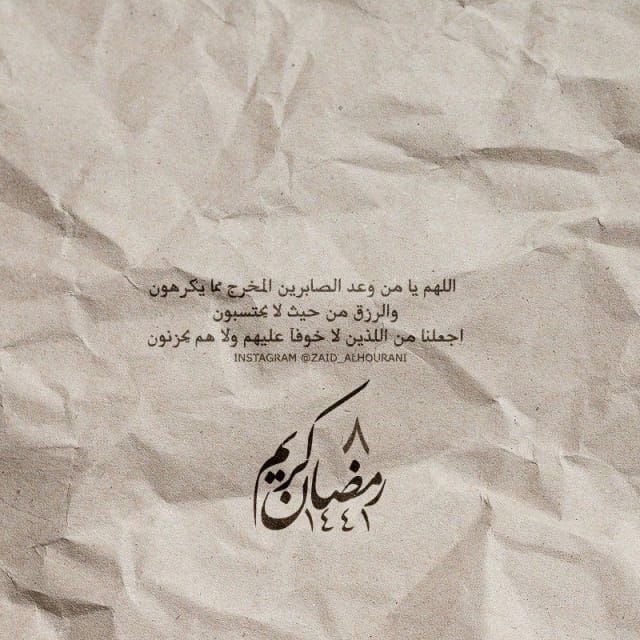 اللهم يا من وعد الصابرين المخرج مما يكرهون
والرزق من حيث لا يحتسبون
اجعلنا من اللذين لا خوفاً عليهم ولا هم يحزنون
INSTAGRAM @ZAID_ALHOURANI
٨
رمضان كريم
١٤٤١